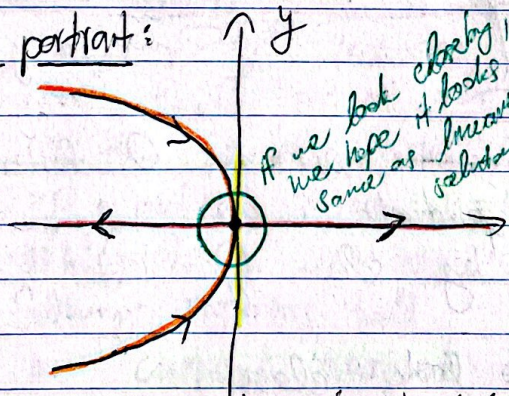 portrait:
y
if we look closely
we hope it looks
same as linear